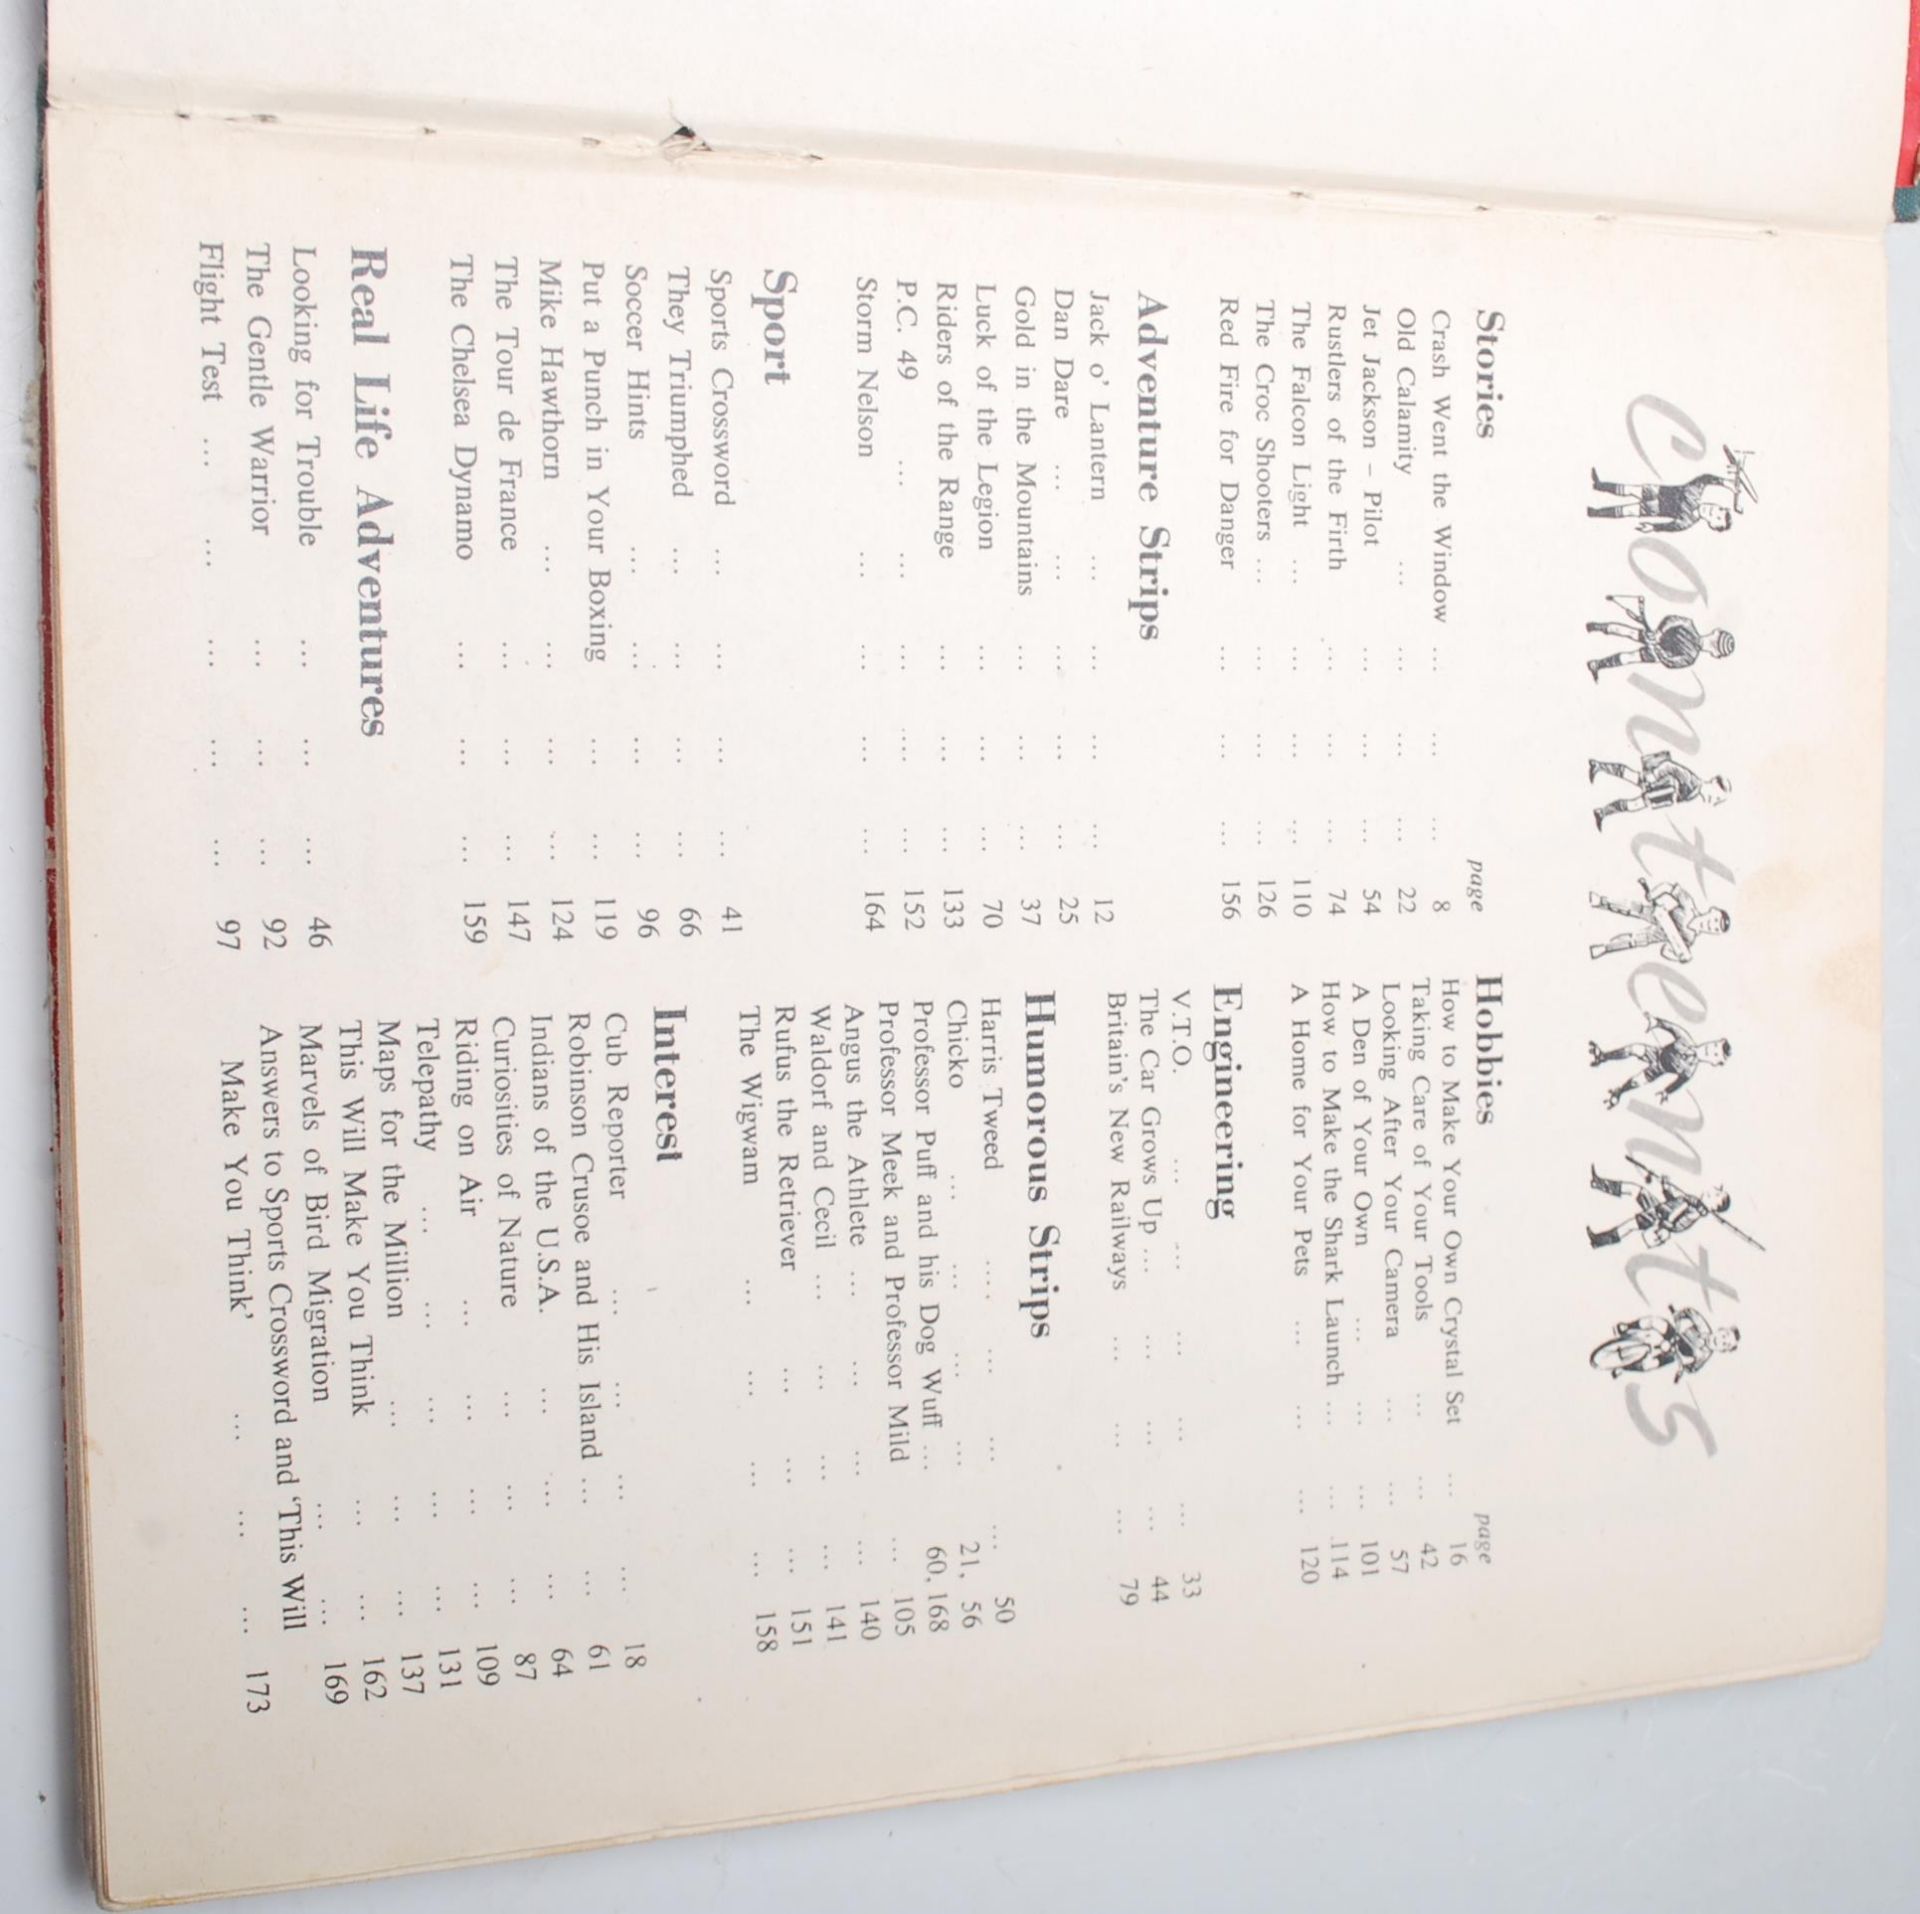 Contents
Stories
page
Crash Went the Window ... ... ... 8
Old Calamity ... ... ... ... 22
Jet Jackson – Pilot ... ... ... 54
Rustlers of the Firth ... ... ... 74
The Falcon Light ... ... ... ... 110
The Croc Shooters ... ... ... ... 126
Red Fire for Danger ... ... ... 156
Adventure Strips
Jack o' Lantern ... ... ... ... 12
Dan Dare ... ... ... ... ... 25
Gold in the Mountains ... ... ... 37
Luck of the Legion ... ... ... 70
Riders of the Range ... ... ... 133
P.C. 49 ... ... ... .... ... 152
Storm Nelson ... ... ... ... 164
Sport
Sports Crossword ... ... ... ... 41
They Triumphed ... ... ... ... 66
Soccer Hints ... ... ... ... 96
Put a Punch in Your Boxing ... ... 119
Mike Hawthorn ... ... ... ... 124
The Tour de France ... ... ... 147
The Chelsea Dynamo ... ... ... 159
Real Life Adventures
Looking for Trouble ... ... ... 46
The Gentle Warrior ... ... ... 92
Flight Test ... ... ... ... ... 97
Hobbies
page
How to Make Your Own Crystal Set ... 16
Taking Care of Your Tools ... ... 42
Looking After Your Camera ... ... 57
A Den of Your Own ... ... ... 101
How to Make the Shark Launch ... ... 114
A Home for Your Pets ... ... ... 120
Engineering
V.T.O. ... ... ... ... ... 33
The Car Grows Up ... ... ... ... 44
Britain's New Railways ... ... ... 79
Humorous Strips
Harris Tweed .... ... ... ... 50
Chicko ... ... ... ... 21, 56
Professor Puff and his Dog Wuff ... 60, 168
Professor Meek and Professor Mild ... 105
Angus the Athlete ... ... ... ... 140
Waldorf and Cecil ... ... ... ... 141
Rufus the Retriever ... ... ... 151
The Wigwam ... ... ... ... 158
Interest
Cub Reporter ... ... ... ... 18
Robinson Crusoe and His Island ... ... 61
Indians of the U.S.A. ... ... ... 64
Curiosities of Nature ... ... ... 87
Riding on Air ... ... ... ... 109
Telepathy ... ... ... ... ... 131
Maps for the Million ... ... ... 137
This Will Make You Think ... ... 162
Marvels of Bird Migration ... ... 169
Answers to Sports Crossword and 'This Will
Make You Think' ... ... ... 173